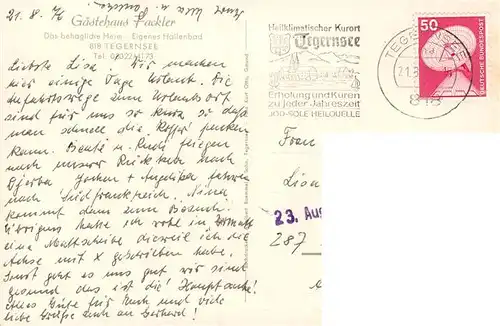 21.8.
Gästehaus Fackler
Das behagliche Heim · Eigenes Hallenbad
818 TEGERNSEE
Liebste Lisa! Wir machen
hier einige Tage Urlaub. Die
Anfahrtswege zum Urlaubsort
sind für uns so kurz, so daß
man schnell die Koffer packen
kann. Beate u. Rudi fliegen
nach unserer Rückkehr nach
Djerba, Jochen + Angelika fahren
nach Südfrankreich. Nina
kommt dann zum Besuch.
Übrigens hatte ich wohl in
eine Mattscheibe dieweil ich die
Achse mit X geschrieben habe.
Sonst geht es uns gut wir sind
gesund das ist die Hauptsache!
Alles Gute für Euch und viele
liebe Grüße auch an Gerhard!
Heilklimatischer Kurort
Tegernsee
Erholung und Kuren
zu jeder Jahreszeit
JOD-SOLE HEILQUELLE
TEGERNSEE
818
50
DEUTSCHE BUNDESPOST
Frau
Lisa
23. Aug
287